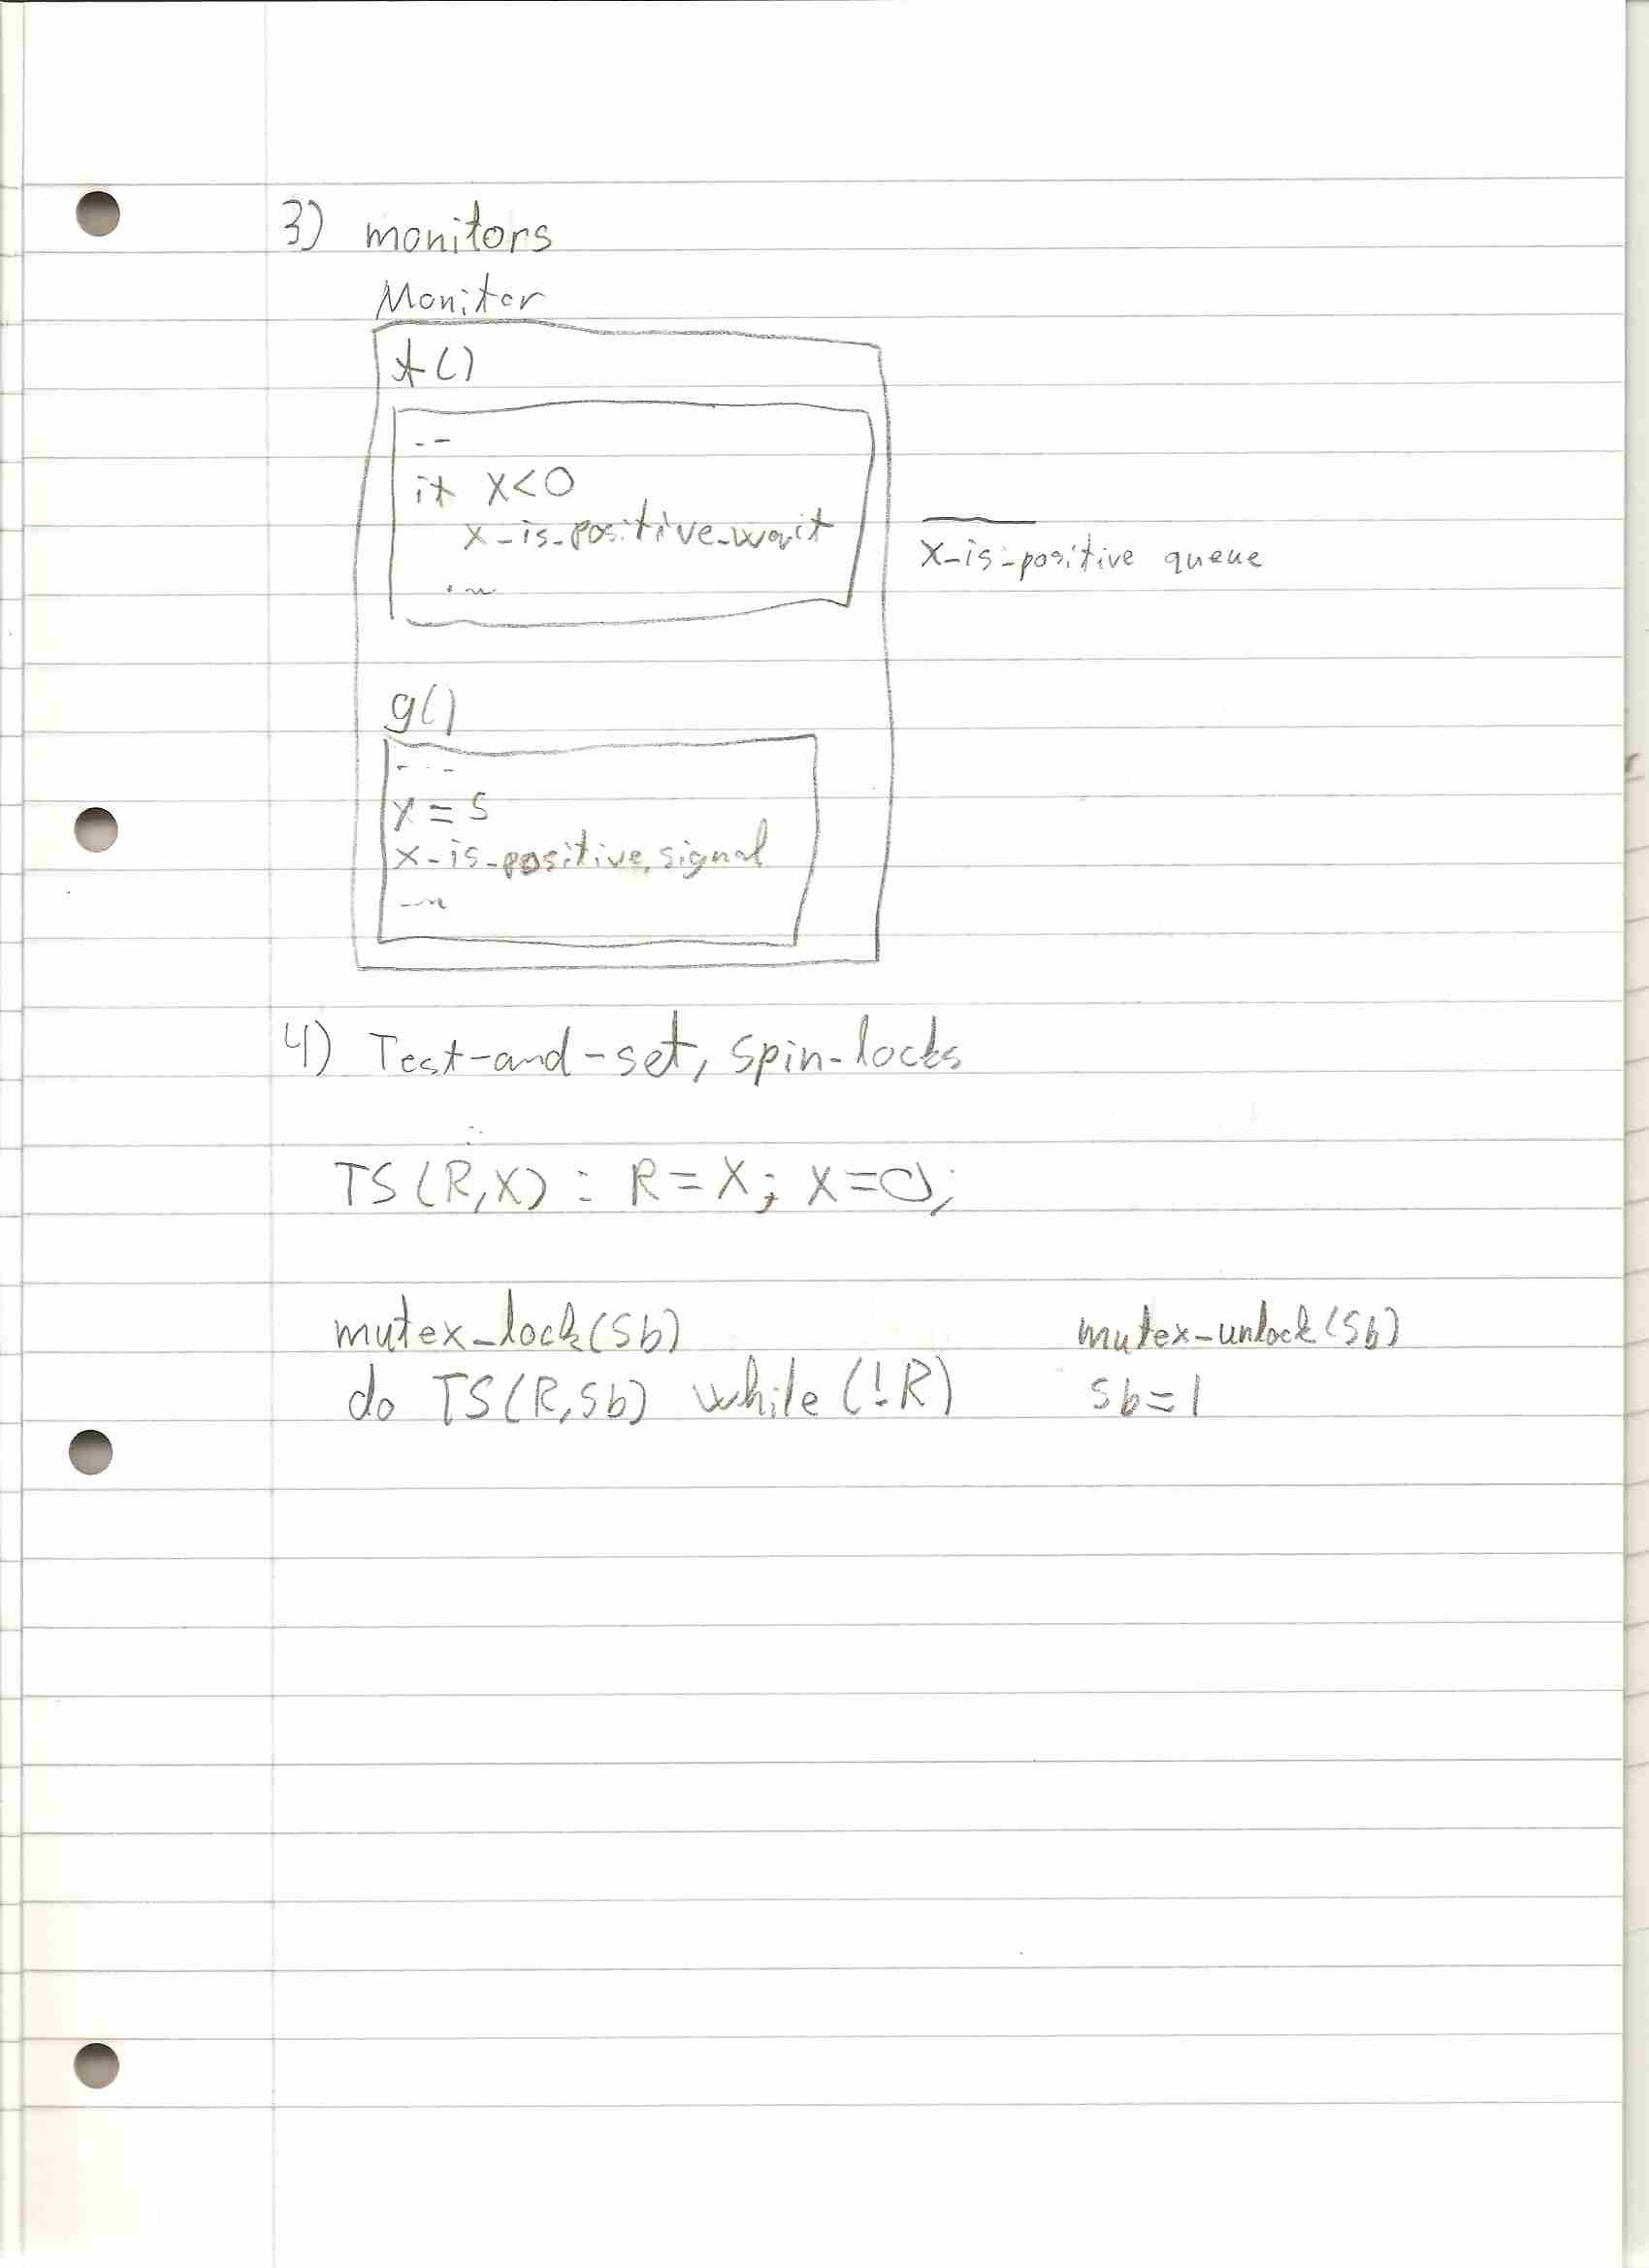 3) monitors
Monitor
f()
--
if x<0
x-is-positive-wait
...
x-is-positive queue
g()
---
x = 5
x-is-positive.signal
...
4) Test-and-set, spin-locks
TS(R,X) : R=X; X=0;
mutex-lock(Sb)
do TS(R,Sb) while (!R)
mutex-unlock(Sb)
Sb=1